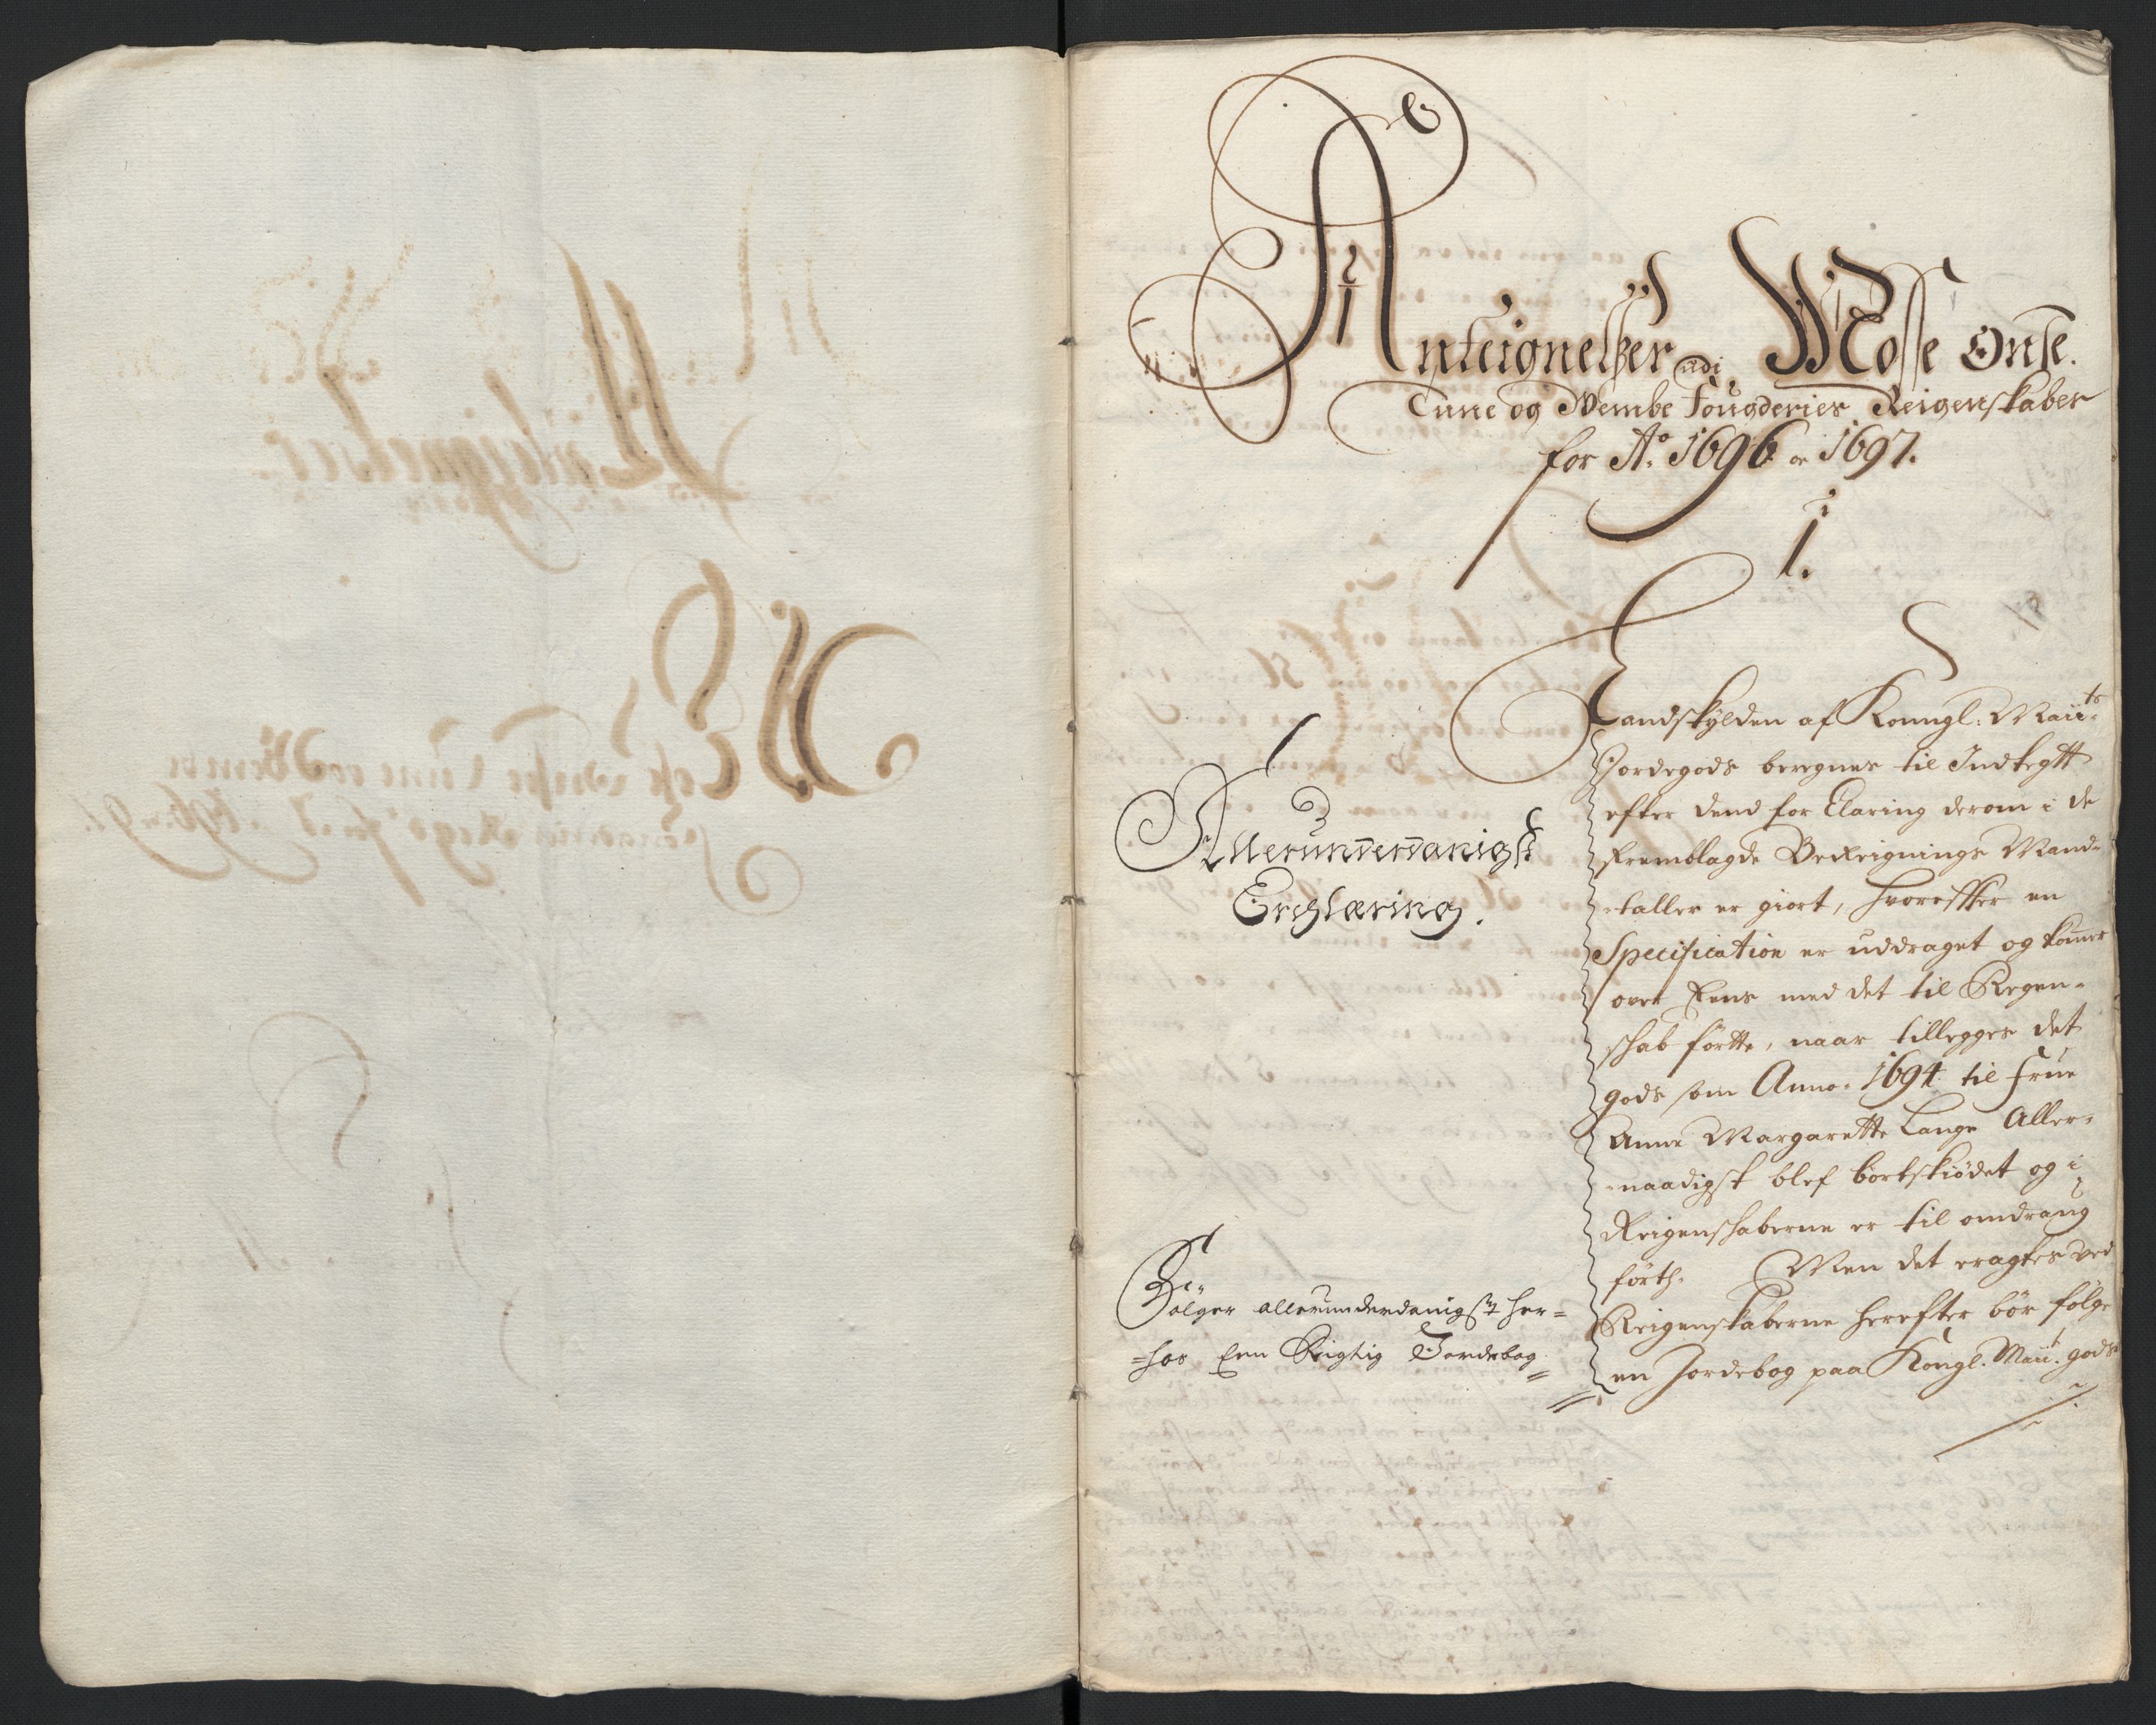 Anteignelßer udi Mosse Onse.
Tune og Wembe Fougderies Reigenskaber
for Ao. 1696 og 1697.
1.
Landskylden af Konngl: Maiits.
Jordegods beregnes til Indtegtt
efter dend forClaring derom i de
fremblagde Bedreignings Mand-
-taller er giort, hvoreffter en
Specification er uddraget og komer
over Eens med det til Regen-
schab førtte, naar tillegges det
gods som Anno. 1694 til Frue
Anne Margarette Lange Aller-
naadigst blef bortskiødet og i
Reigenschaberne er til omdrang
førth. Men det eragtes ved
Reigenskaberne herefter bør følge
en Jordebog paa Kongl. Maiit. gods
Allerunderdanigst
Erchlæring.
Følger allerunderdanigst her=
=hos Een Rigtig Jordebog